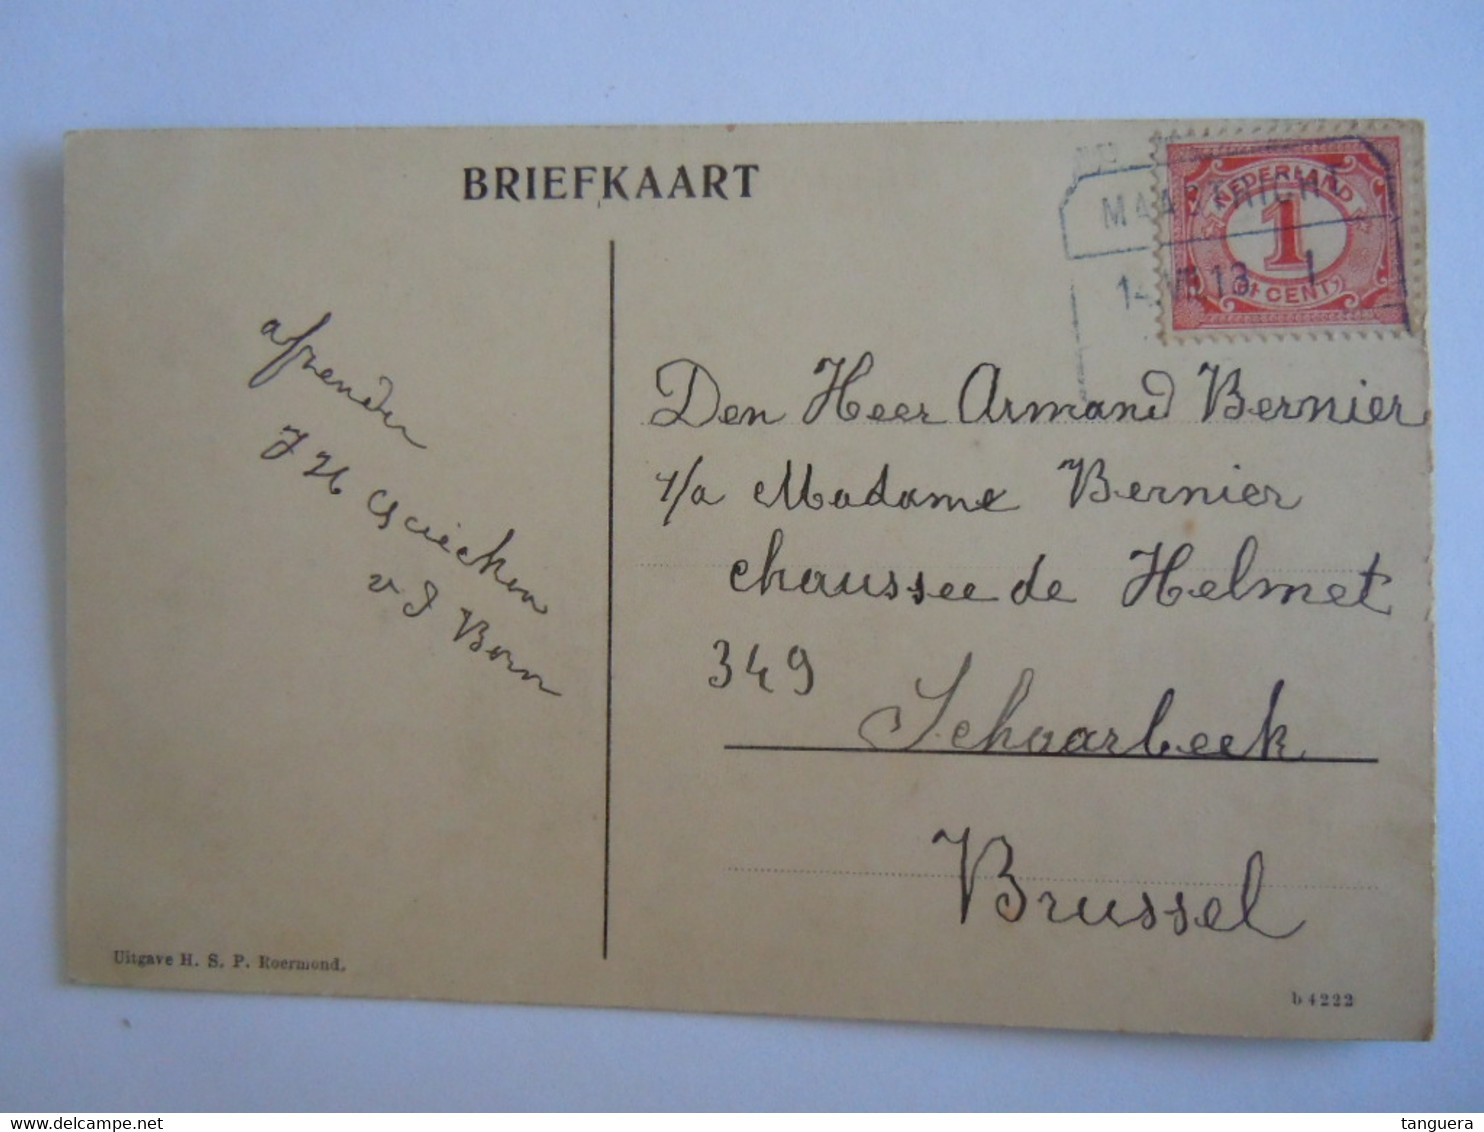 BRIEFKAART
NEDERLAND
1
CENT
MAASTRICHT
afzender
J H
v d Born
Den Heer Armand Bernier
1/a Madame Bernier
chaussee de Helmet
349
Schaarbeek
Brussel
Uitgave H. S. P. Roermond.
b 4222
delcampe.net
tanguera